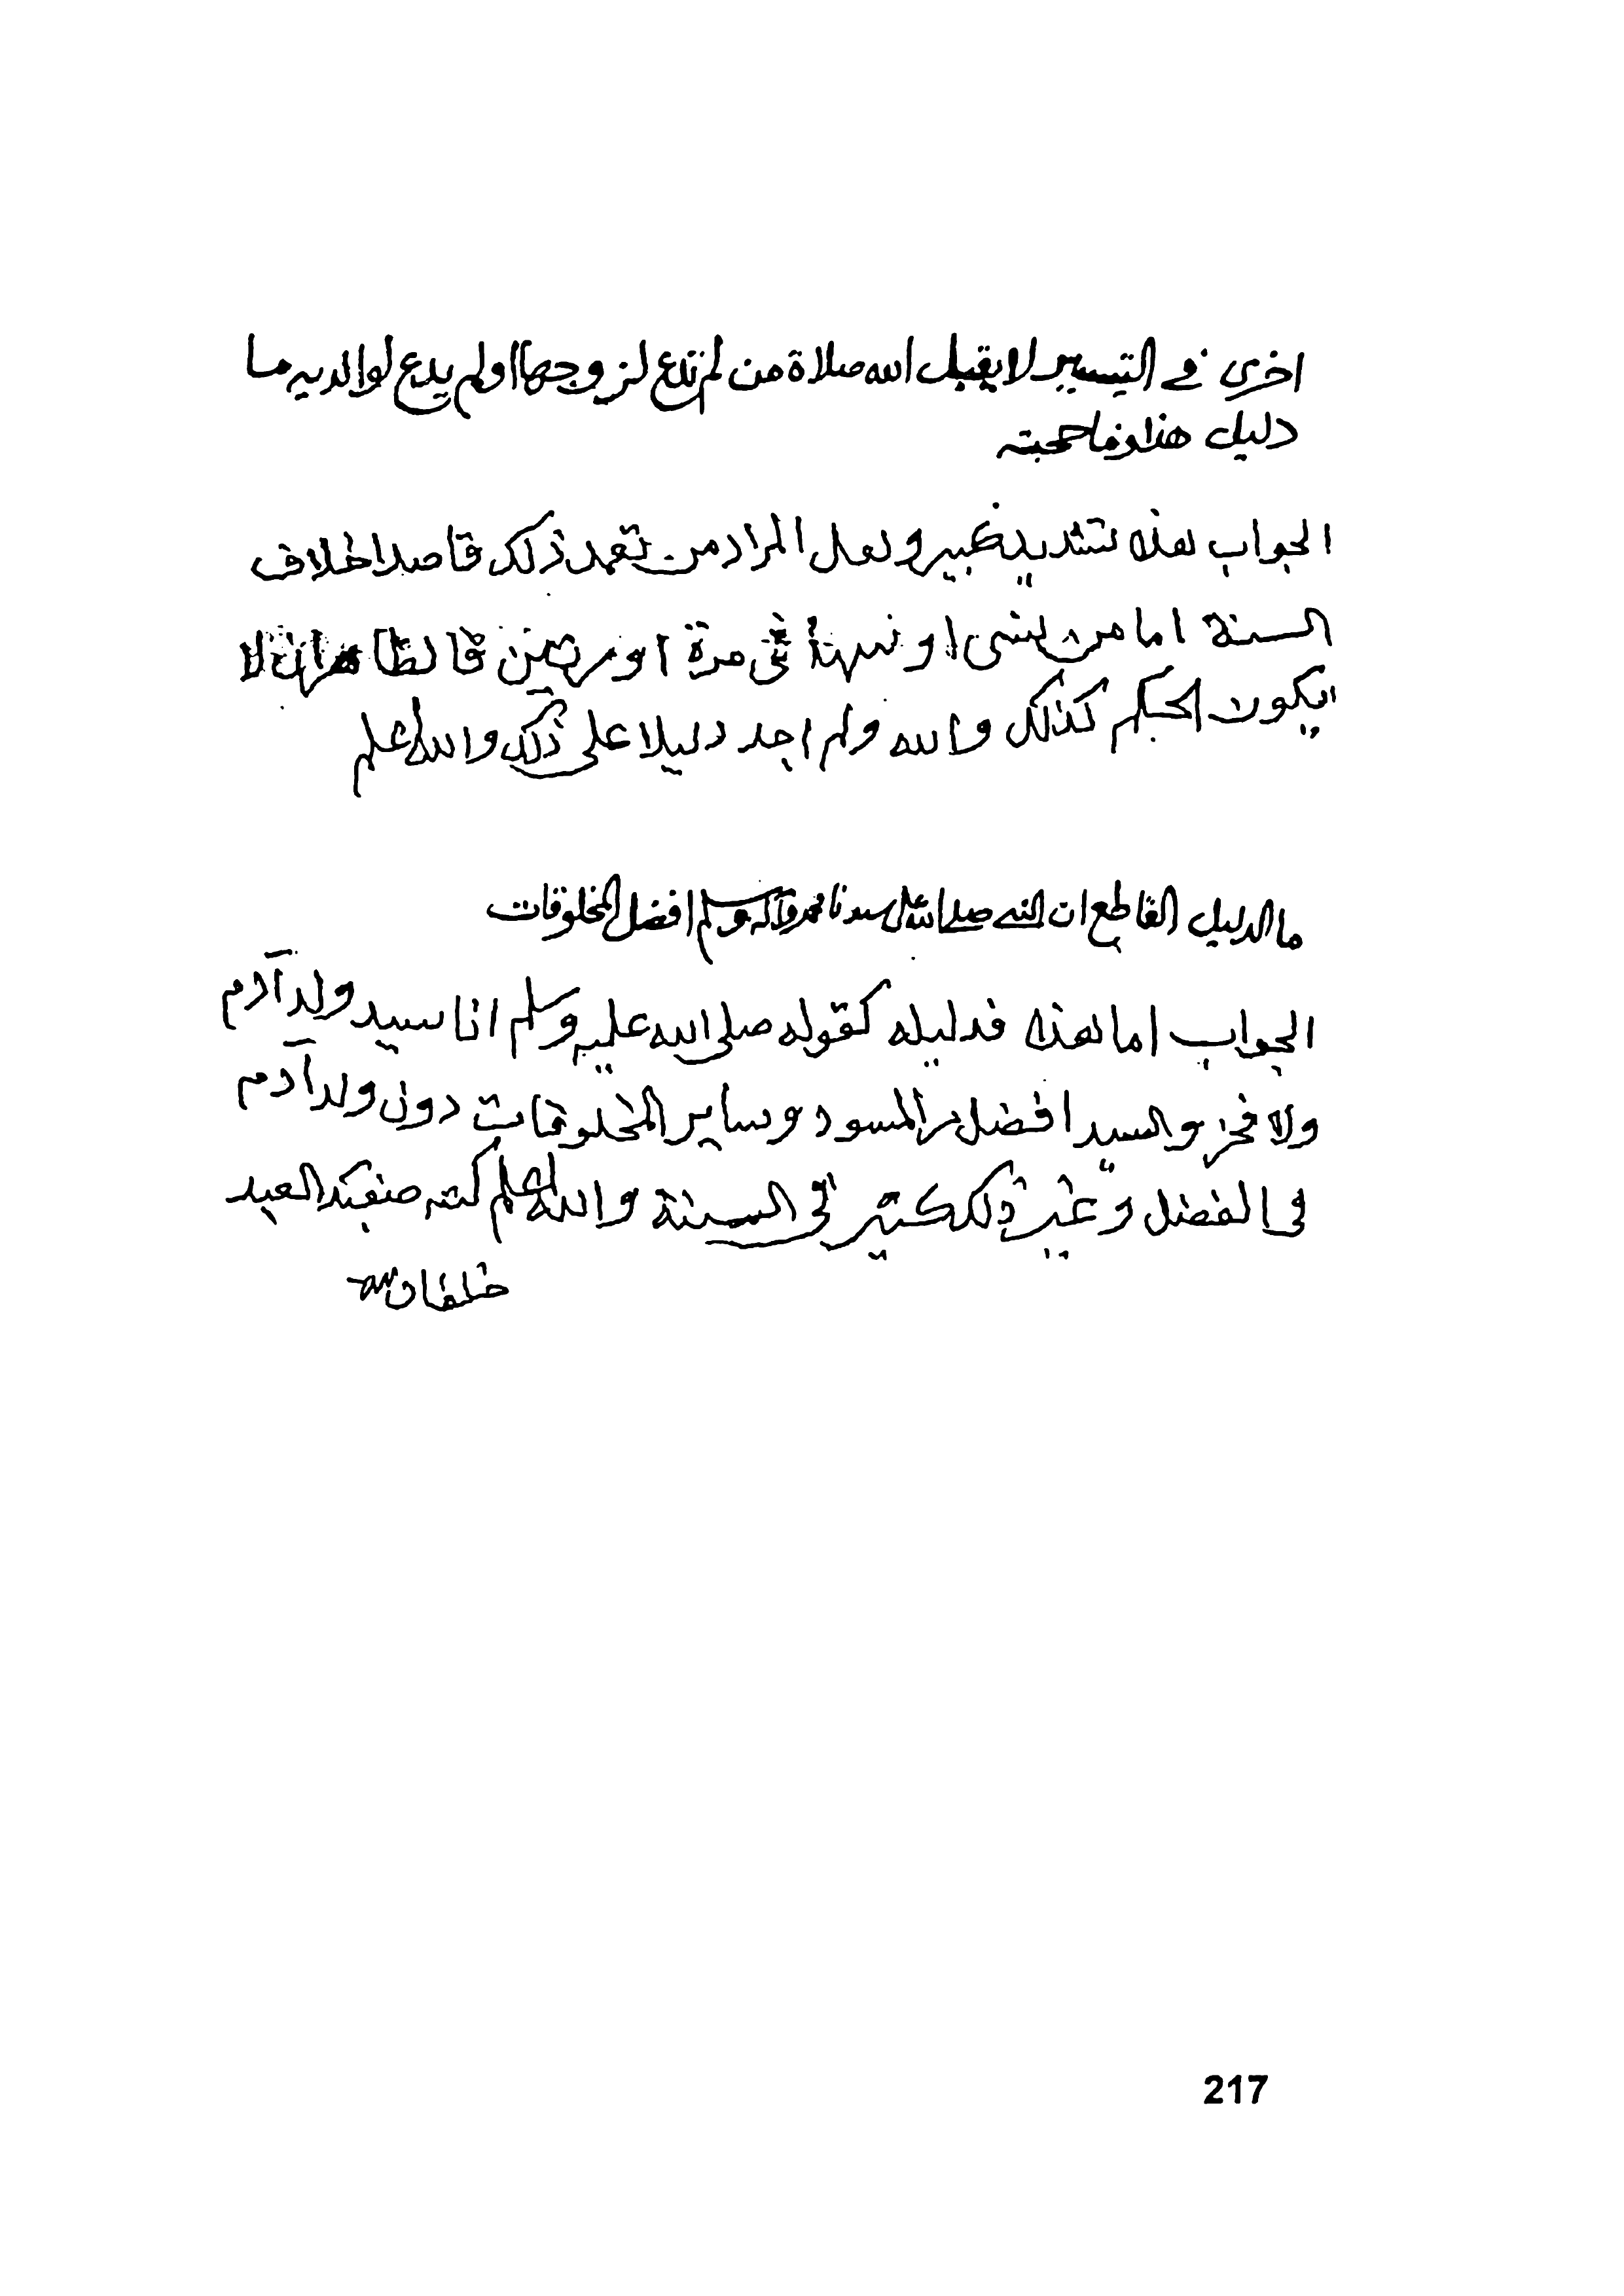 اخرى في التيسير لا يقبل الله صلاة من لم تدع لزوجها او لم يدع لوالديه ما
دليل هذا وما حجته
الجواب هذه تشديد كبير ولعل المراد من تعمد ذلك قاصدا خلاف
السنة اما من نسي او في مرة او مرتين فالظاهر ان لا
يكون الحكم كذلك والله ولم اجد دليلا على ذلك والله اعلم
ما الدليل القاطع ان النبي صلى الله على سيدنا محمد وآله وسلم افضل المخلوقات
الجواب اما هذه فدليله كقوله صلى الله عليه وسلم انا سيد ولد آدم
ولا فخر والسيد افضل من المسود وساير المخلوقات دون ولد آدم
في الفضل وغير ذلك كثير في السنة والله اعلم كتبه العبد
خلفان
217